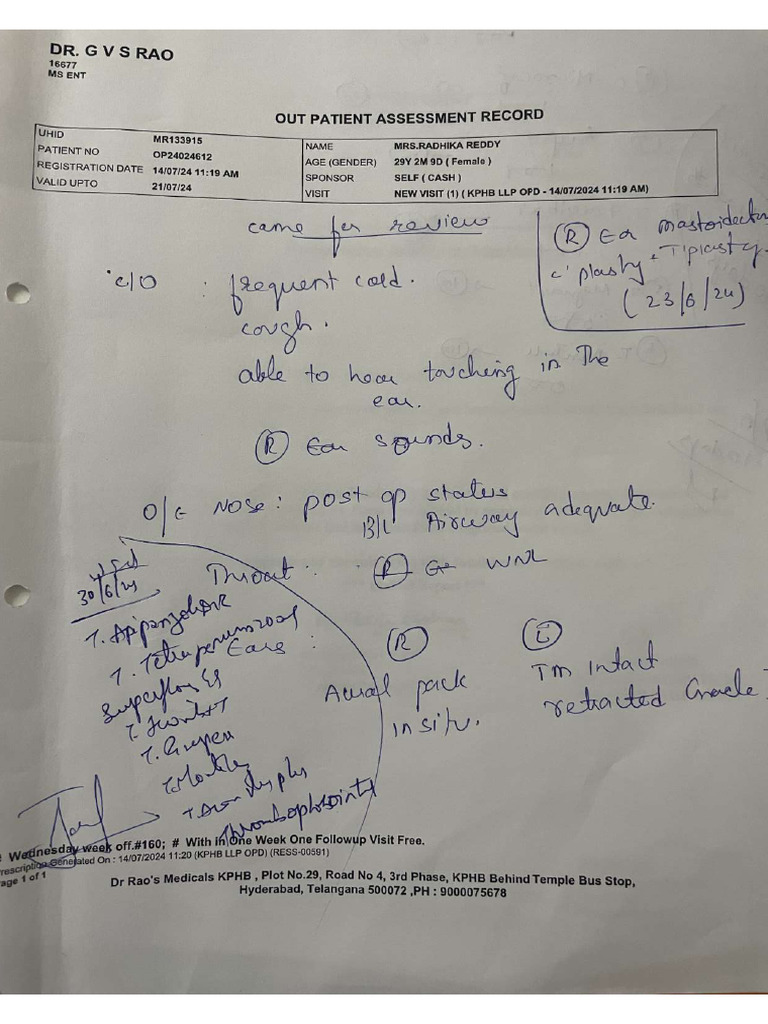 DR. G V S RAO
16677
MS ENT
OUT PATIENT ASSESSMENT RECORD
UHID MR133915 NAME MRS.RADHIKA REDDY
PATIENT NO OP24024612 AGE (GENDER) 29Y 2M 9D ( Female )
REGISTRATION DATE 14/07/24 11:19 AM SPONSOR SELF ( CASH )
VALID UPTO 21/07/24 VISIT NEW VISIT (1) ( KPHB LLP OPD - 14/07/2024 11:19 AM)
came for review
(R) Ear Mastoidectomy
c' plasty + T'plasty
(23/6/24)
c/o : frequent cold.
cough.
able to hear touching in the
ear.
(R) Ear sounds.
O/E Nose: post op status
B/L Airway adequate.
Throat: WNL
30/6/24
Ears : (R) (L)
Aural pack
insitu.
TM intact
retracted Grade I
# Wednesday week off.#160; # With in One Week One Followup Visit Free.
Prescription Generated On : 14/07/2024 11:20 (KPHB LLP OPD) (RESS-00591)
Page 1 of 1
Dr Rao's Medicals KPHB , Plot No.29, Road No 4, 3rd Phase, KPHB Behind Temple Bus Stop,
Hyderabad, Telangana 500072 ,PH : 9000075678